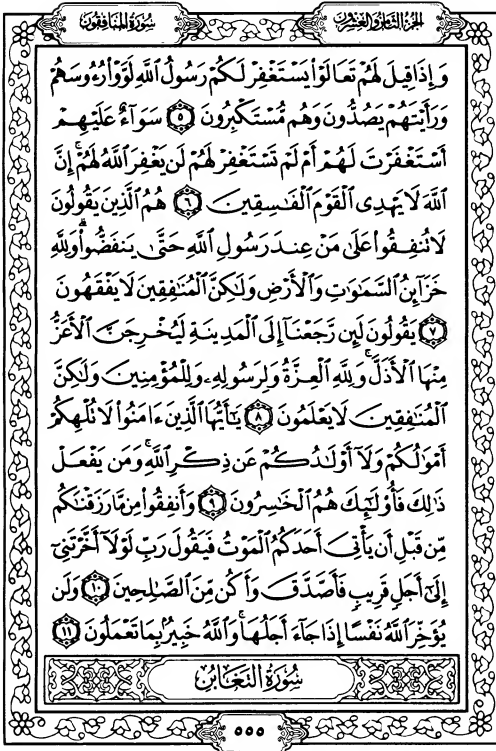 سورة المنافقون
الجزء الثامن والعشرون
وَإِذَا قِيلَ لَهُمْ تَعَالَوْا۟ يَسْتَغْفِرْ لَكُمْ رَسُولُ ٱللَّهِ لَوَّوْا۟ رُءُوسَهُمْ
وَرَأَيْتَهُمْ يَصُدُّونَ وَهُم مُّسْتَكْبِرُونَ ٥ سَوَآءٌ عَلَيْهِمْ
أَسْتَغْفَرْتَ لَهُمْ أَمْ لَمْ تَسْتَغْفِرْ لَهُمْ لَن يَغْفِرَ ٱللَّهُ لَهُمْ ۚ إِنَّ
ٱللَّهَ لَا يَهْدِى ٱلْقَوْمَ ٱلْفَـٰسِقِينَ ٦ هُمُ ٱلَّذِينَ يَقُولُونَ
لَا تُنفِقُوا۟ عَلَىٰ مَنْ عِندَ رَسُولِ ٱللَّهِ حَتَّىٰ يَنفَضُّوا۟ ۗ وَلِلَّهِ
خَزَآئِنُ ٱلسَّمَـٰوَٰتِ وَٱلْأَرْضِ وَلَـٰكِنَّ ٱلْمُنَـٰفِقِينَ لَا يَفْقَهُونَ
٧ يَقُولُونَ لَئِن رَّجَعْنَآ إِلَى ٱلْمَدِينَةِ لَيُخْرِجَنَّ ٱلْأَعَزُّ
مِنْهَا ٱلْأَذَلَّ ۚ وَلِلَّهِ ٱلْعِزَّةُ وَلِرَسُولِهِۦ وَلِلْمُؤْمِنِينَ وَلَـٰكِنَّ
ٱلْمُنَـٰفِقِينَ لَا يَعْلَمُونَ ٨ يَـٰٓأَيُّهَا ٱلَّذِينَ ءَامَنُوا۟ لَا تُلْهِكُمْ
أَمْوَٰلُكُمْ وَلَآ أَوْلَـٰدُكُمْ عَن ذِكْرِ ٱللَّهِ ۚ وَمَن يَفْعَلْ
ذَٰلِكَ فَأُو۟لَـٰٓئِكَ هُمُ ٱلْخَـٰسِرُونَ ٩ وَأَنفِقُوا۟ مِن مَّا رَزَقْنَـٰكُم
مِّن قَبْلِ أَن يَأْتِىَ أَحَدَكُمُ ٱلْمَوْتُ فَيَقُولَ رَبِّ لَوْلَآ أَخَّرْتَنِىٓ
إِلَىٰٓ أَجَلٍ قَرِيبٍ فَأَصَّدَّقَ وَأَكُن مِّنَ ٱلصَّـٰلِحِينَ ١٠ وَلَن
يُؤَخِّرَ ٱللَّهُ نَفْسًا إِذَا جَآءَ أَجَلُهَا ۚ وَٱللَّهُ خَبِيرٌۢ بِمَا تَعْمَلُونَ ١١
سُورَةُ التَّغَابُن
٥٥٥